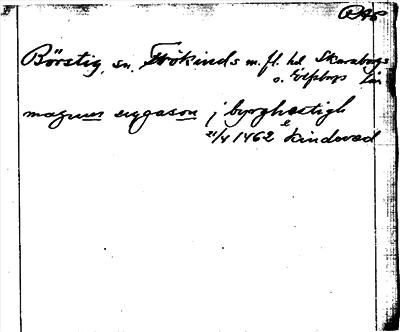 Börstig, sn. Frökinds m. fl. hd Skaraborgs
o. Älvsborgs län
magnus eyggason j byrghæstigh
21/4 1462 kindwed